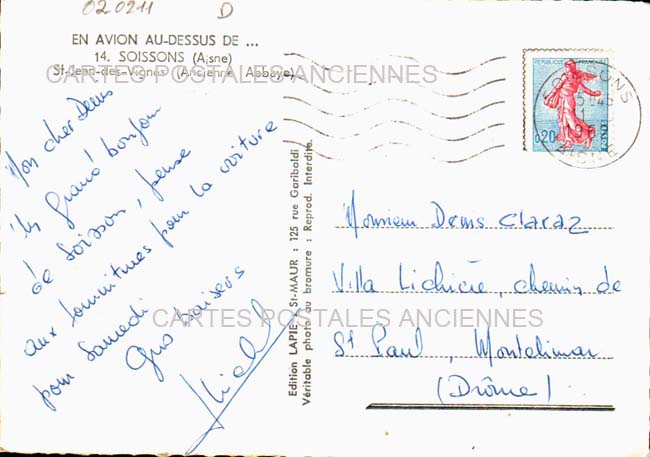 020211 D
EN AVION AU-DESSUS DE ...
14. SOISSONS (Aisne)
St-Jean-des-Vignes (Ancienne Abbaye)
CARTES POSTALES ANCIENNES
Mon cher Denis
Un grand bonjour
de Soissons, pense
aux fournitures pour la voiture
pour Samedi
Gros baisers
Michel
Edition LAPIE, St-MAUR : 125 rue Garibaldi
Véritable photo au bromure : Reprod. Interdite.
REPUBLIQUE FRANÇAISE
0,20
POSTES
SOISSONS
AISNE
Monsieur Denis Claraz
Villa Lichicié, chemin de
St Paul, Montelimar
(Drôme)
CARTES POSTALES ANCIENNES